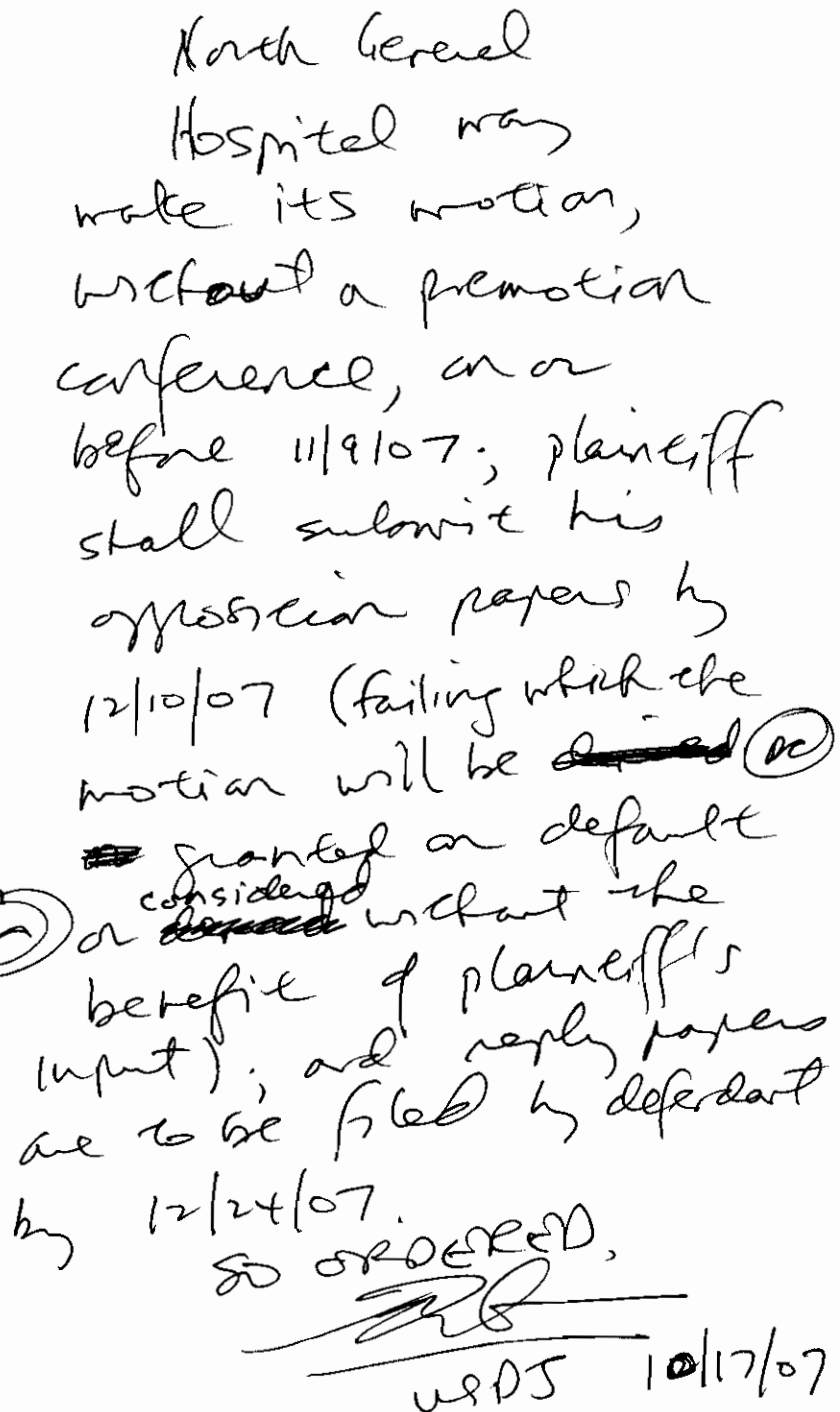 North General
Hospital may
make its motion,
without a premotion
conference, on or
before 11/9/07; plaintiff
shall submit his
opposition papers by
12/10/07 (failing which the
motion will be
granted on default
considered
or without the
benefit of plaintiff's
input); and reply papers
are to be filed by defendant
by 12/24/07.
SO ORDERED.
USDJ 10/17/07